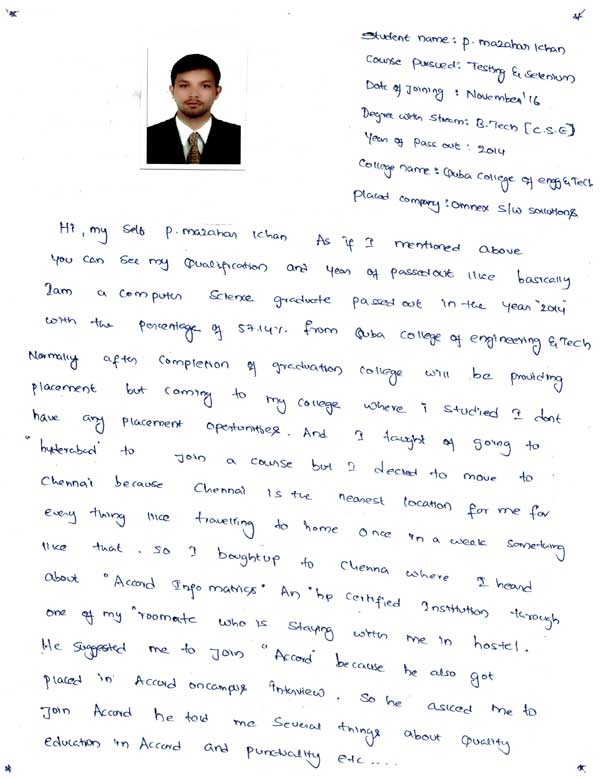 Student name: P. mazahar khan
Course pursued: Testing & Selenium
Date of Joining : November'16
Degree with Stream: B.Tech [C.S.E]
Year of Pass out : 2014
College name: Quba College of engg & Tech
Placed company: Omnex S/W solutions
Hi, my Self P. mazahar khan As if I mentioned above
you can see my Qualification and year of passedout like basically
I am a Computer Science graduate passed out in the year "2014"
with the percentage of 57.14%. from Quba College of engineering & Tech
Normally after completion of graduation college will be providing
placement but coming to my college where i studied I dont
have any placement opertunities. And I taught of going to
"hyderabad" to Join a course but I decied to move to
Chennai because Chennai is the nearest location for me for
every thing like travelling to home once in a week something
like that. So I boughtup to Chenna where I heard
about "Accord Info matrics" An "hp Certified Institution through
one of my "roomate who is Staying with me in hostel.
He Suggested me to Join "Accord" because he also got
placed in Accord oncampus interview. So he asked me to
Join Accord he told me Several things about Quality
education in Accord and punctuality etc....